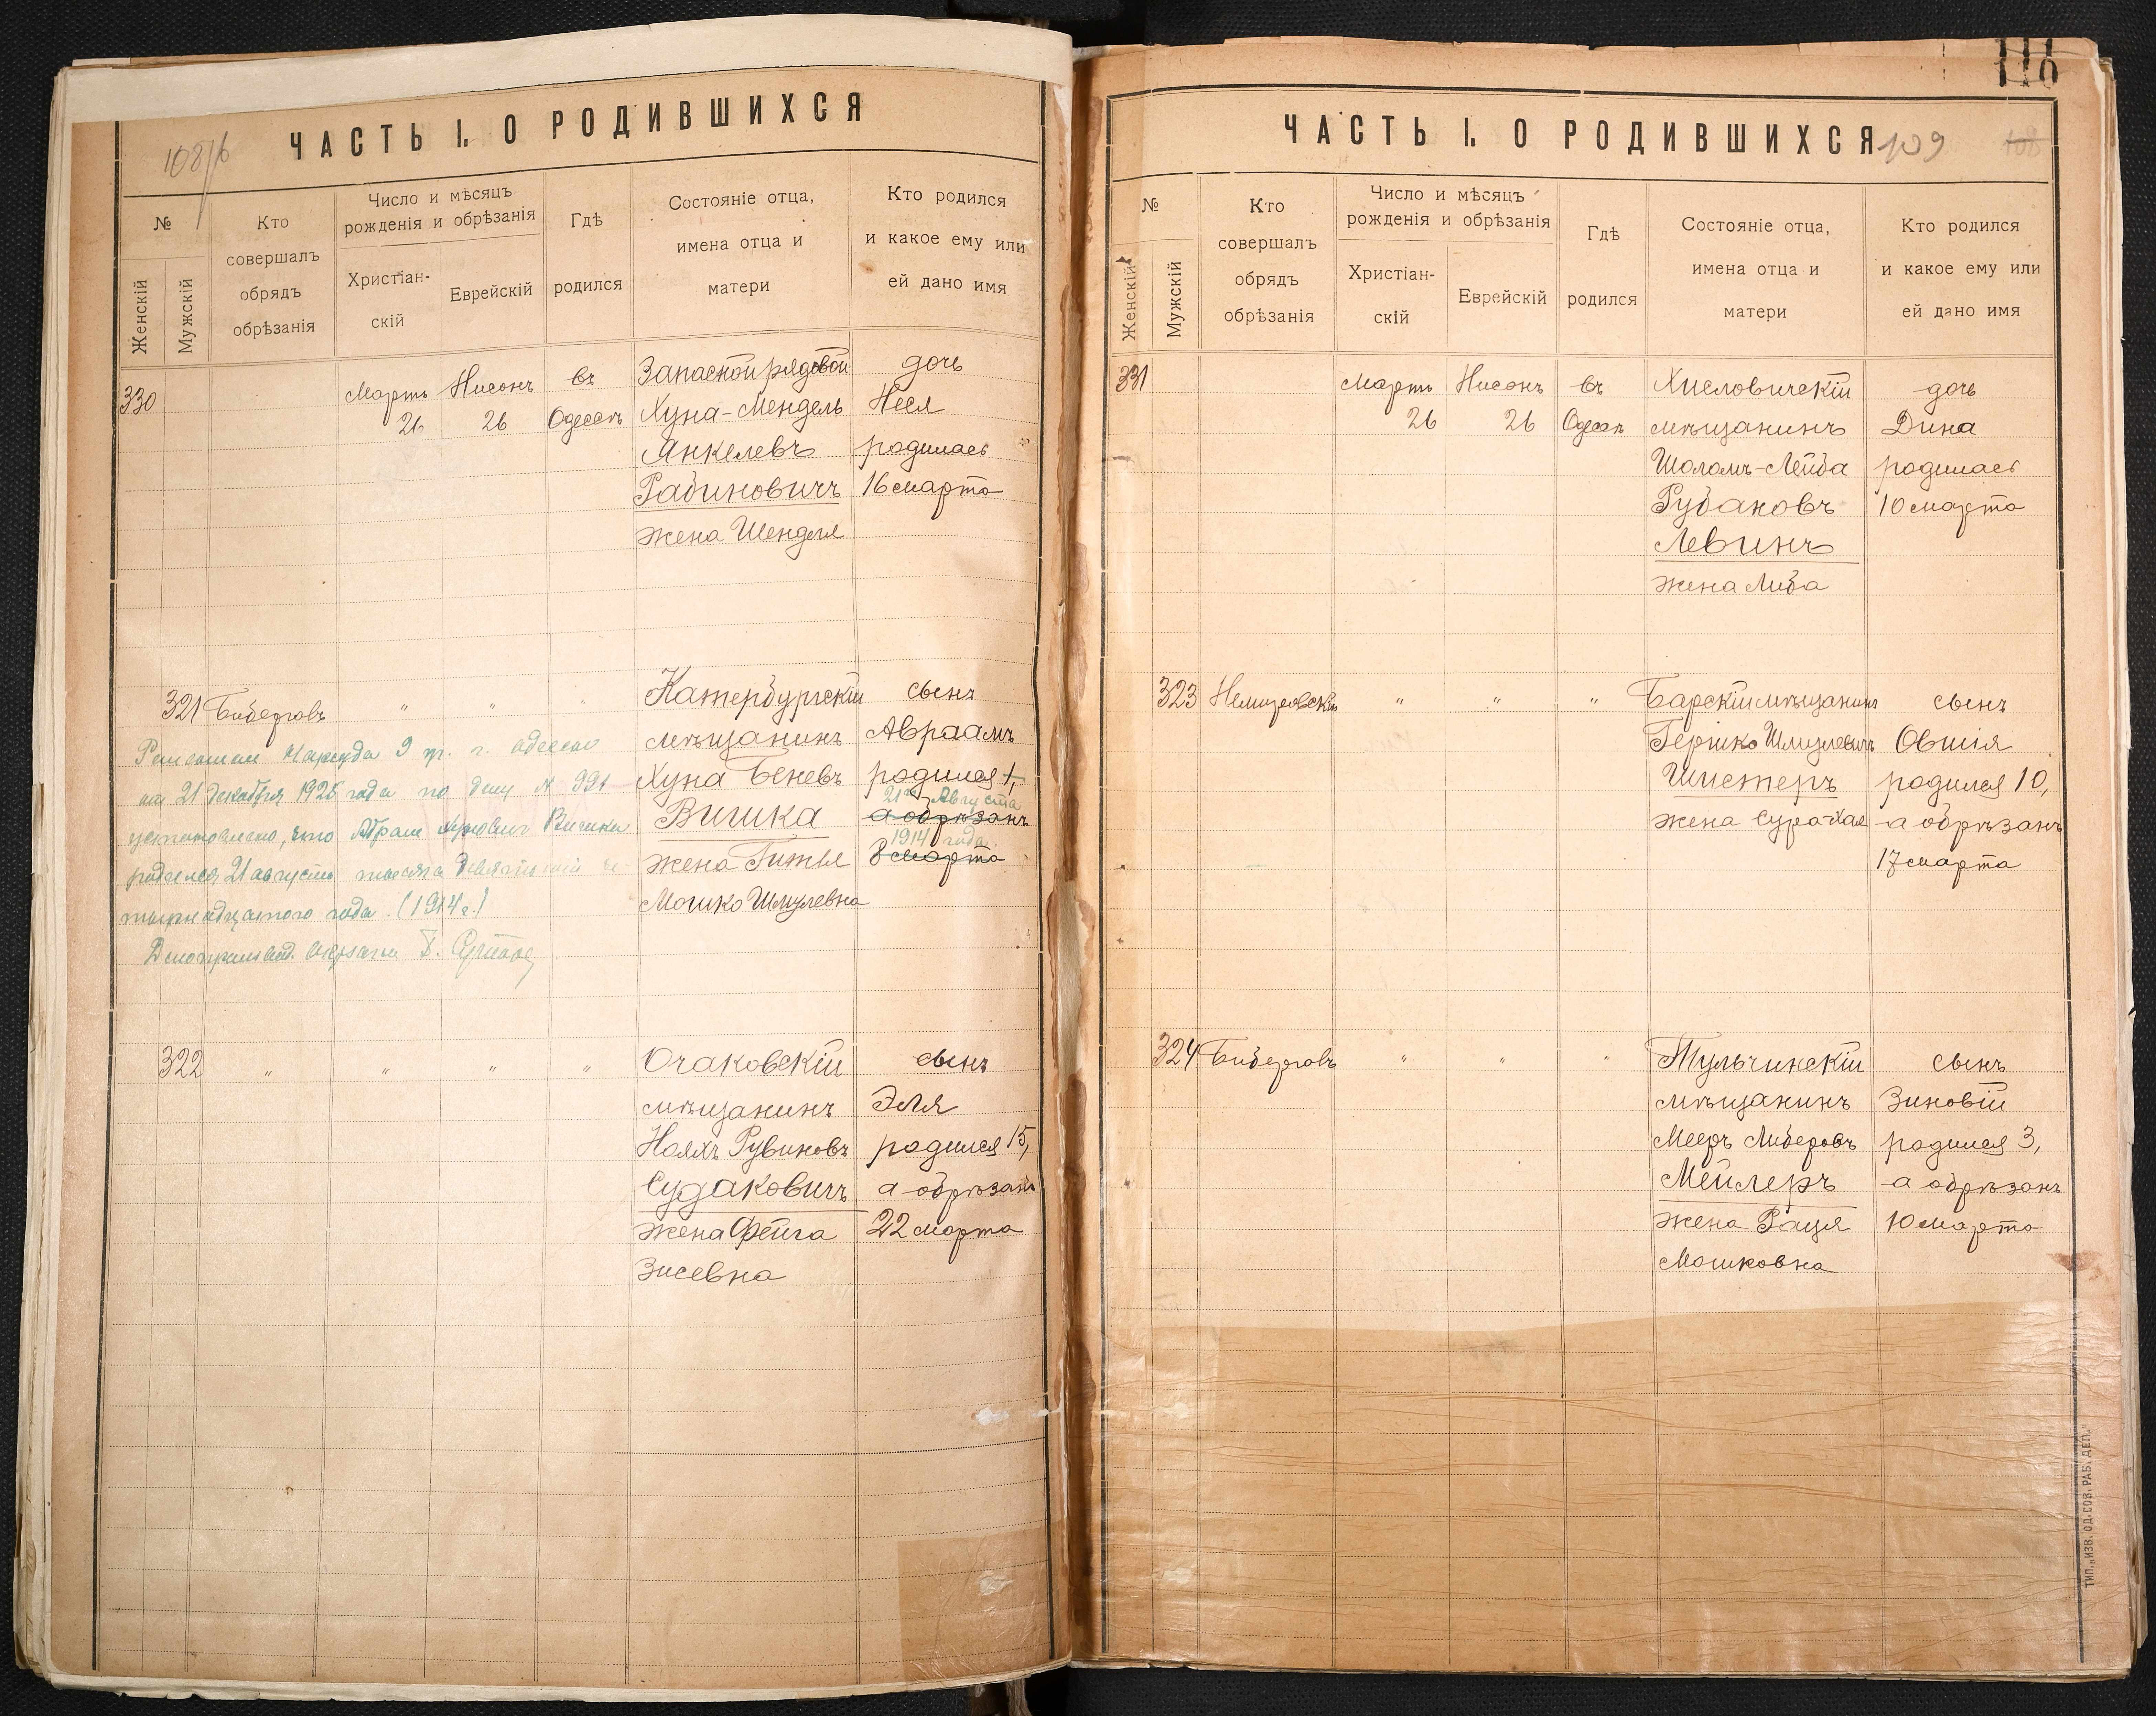 ЧАСТЬ I. О РОДИВШИХСЯ
№
Женскій
Мужскій
Кто
совершалъ
обрядъ
обрѣзанія
Число и мѣсяцъ
рожденія и обрѣзанія
Христіан-
скій
Еврейскій
Гдѣ
родился
Состояніе отца,
имена отца и
матери
Кто родился
и какое ему или
ей дано имя
330
Мартъ
26
Нисонъ
26
въ
Одессѣ
Запасной рядовой
Хуна-Мендель
Янкелевъ
Рабиновичъ
жена Шендля
дочь
Неся
родилась
16 марта
321
Биберговъ
" " "
Катербургскій
мѣщанинъ
Хуна Беневъ
Вишка
жена Гитля
Мошко Шмулевна
сынъ
Авраамъ
родился 1,
21го Августа
а обрѣзанъ
1914 года.
8 марта
Решением Нарсуда 9 г. Одессы
от 21 декабря 1925 года по делу N 991
установлено, что Абрам Хунович Вишка
родился 21 августа тысяча девятьсот че-
тырнадцатого года. (1914 г.)
322
" " " "
Очаковскій
мѣщанинъ
Нояхъ Рувиновъ
Судаковичъ
жена Фейга
Зисевна
сынъ
Эля
родился 15,
а обрѣзанъ
22 марта
110
ЧАСТЬ I. О РОДИВШИХСЯ 109
№
Женскій
Мужскій
Кто
совершалъ
обрядъ
обрѣзанія
Число и мѣсяцъ
рожденія и обрѣзанія
Христіан-
скій
Еврейскій
Гдѣ
родился
Состояніе отца,
имена отца и
матери
Кто родился
и какое ему или
ей дано имя
331
Мартъ
26
Нисонъ
26
въ
Одессѣ
Хиславичскій
мѣщанинъ
Шоломъ-Лейба
Рубановъ
Левинъ
жена Либа
дочь
Дина
родилась
10 марта
323
Немировскій
" " "
Барскій мѣщанинъ
Гершко Шмулевичъ
Шистеръ
жена Сура-Хая
сынъ
Овшія
родился 10,
а обрѣзанъ
17 марта
324
Биберговъ
" " "
Тульчинскій
мѣщанинъ
Мееръ Либеровъ
Мейлеръ
жена Рация
Мошковна
сынъ
Зиновій
родился 3,
а обрѣзанъ
10 марта
ТИП. „ИЗВ. ОД. СОВ. РАБ. ДЕП."